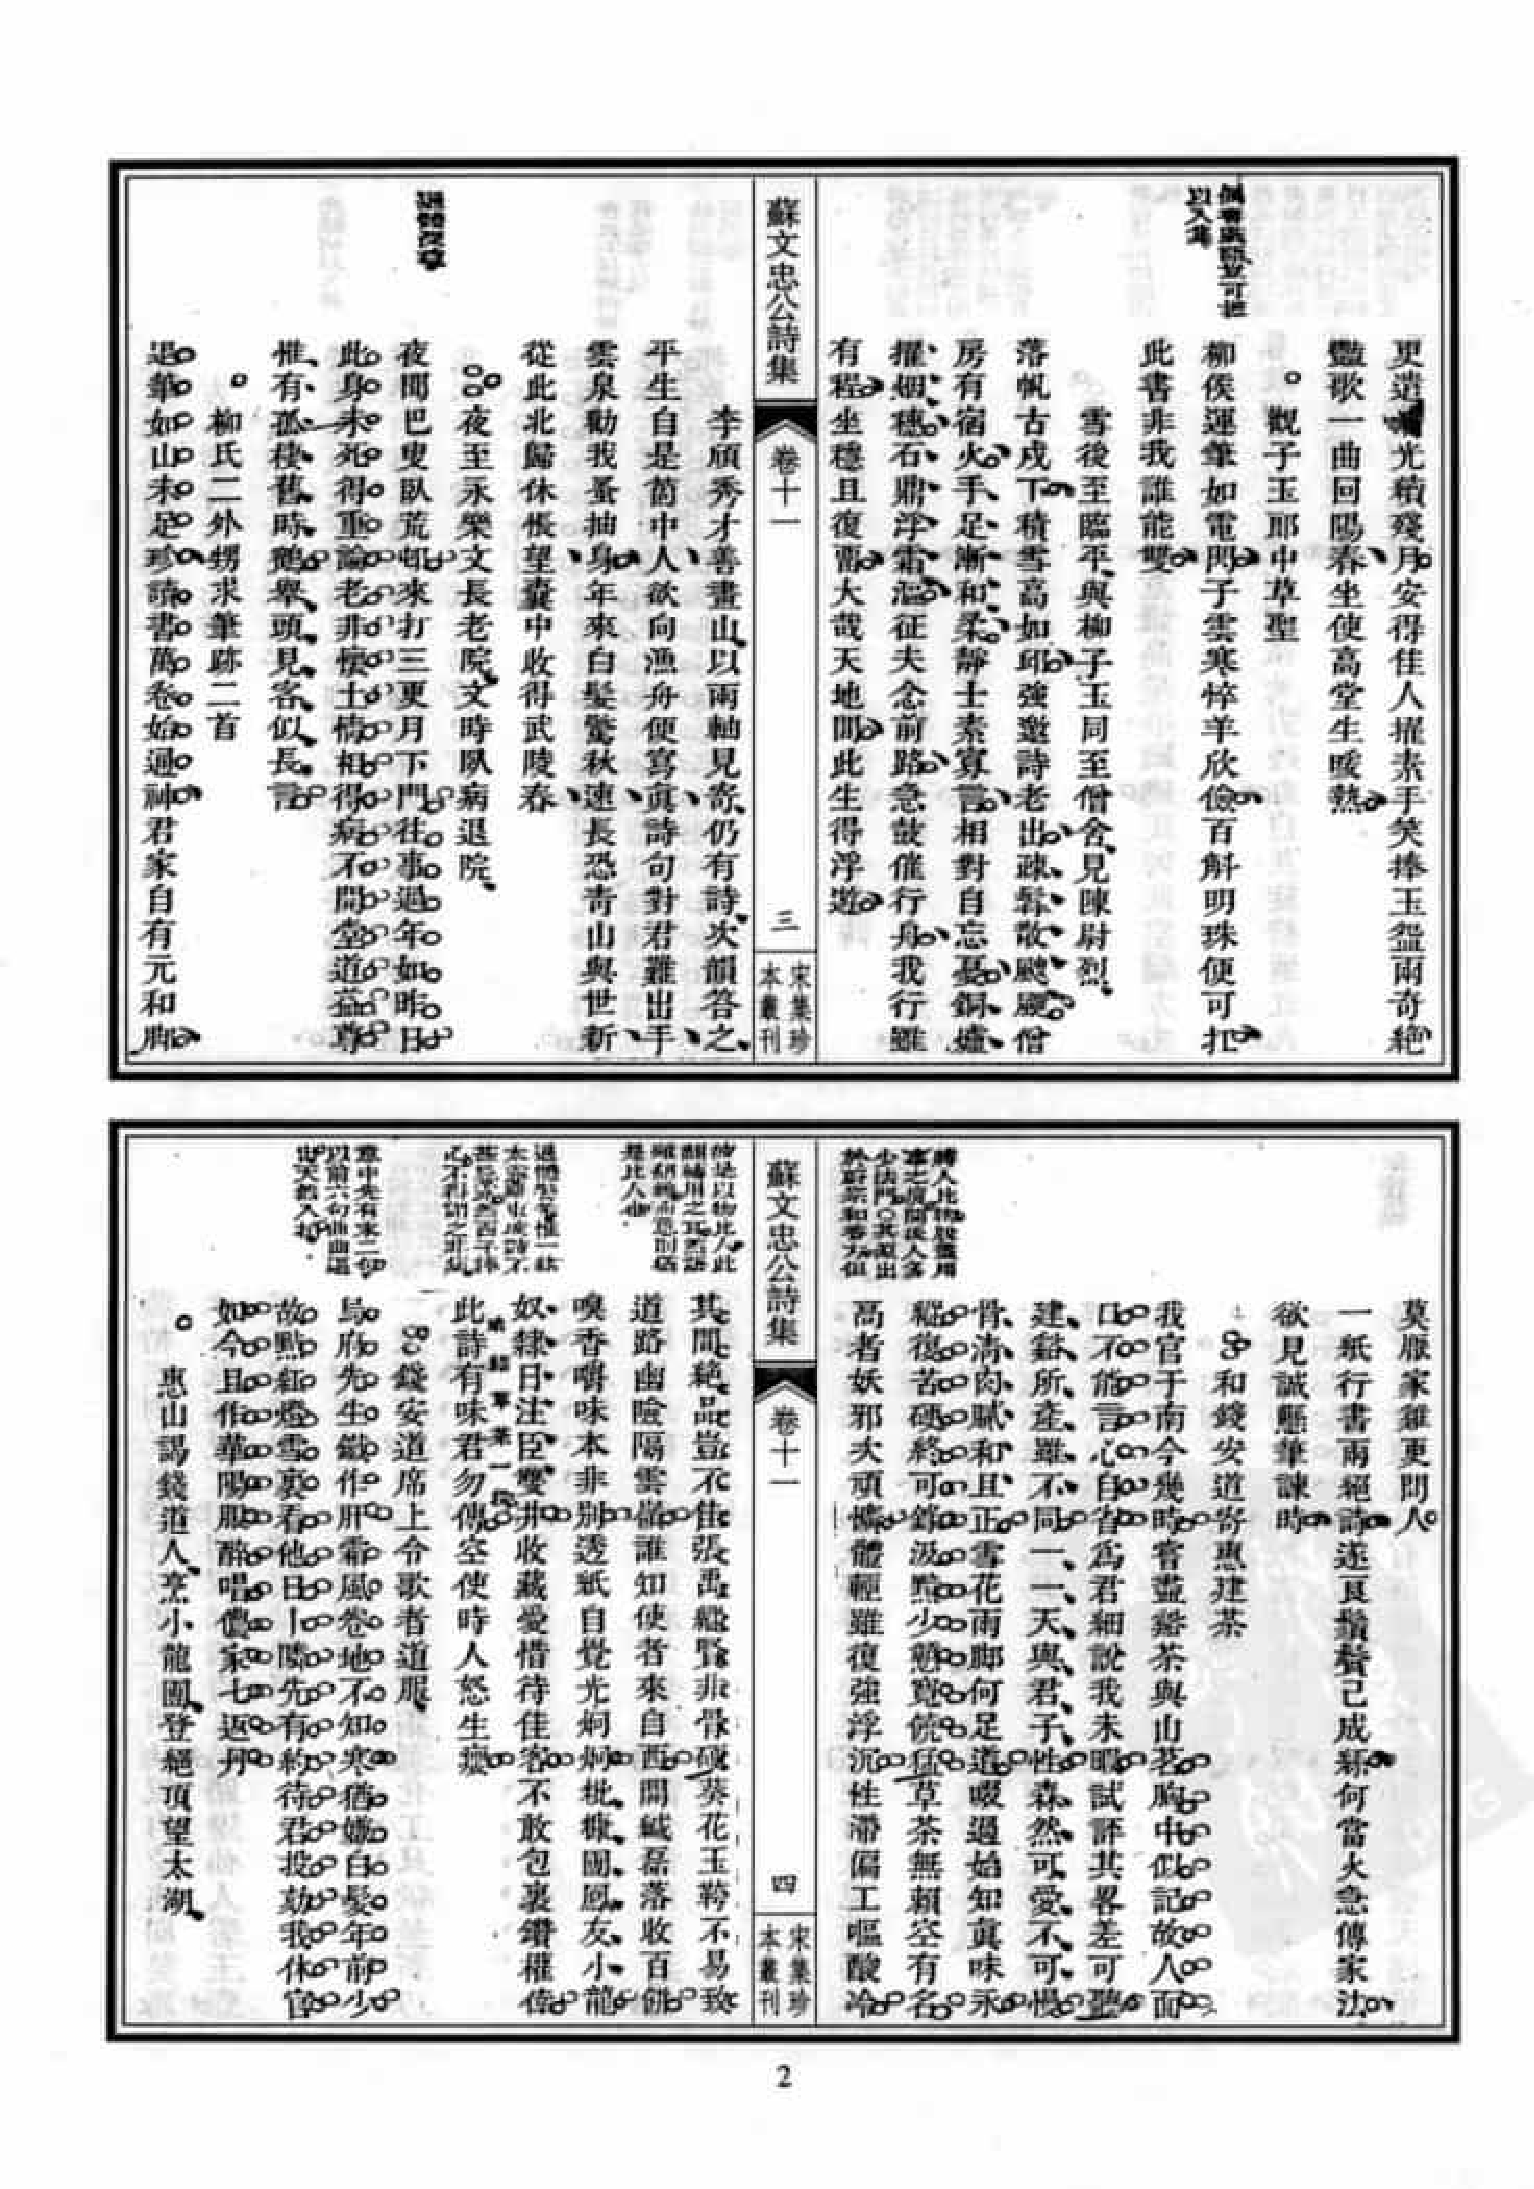 更遺光積殘月安得佳人擢素手笑捧玉盌兩奇絕
豔歌一曲回陽春坐使高堂生暖熱
觀子玉郎中草聖
柳侯運筆如電閃子雲寒悴羊欣儉百斛明珠便可扛
此書非我誰能雙
雪後至臨平與柳子玉同至僧舍見陳尉烈
落帆古戍下積雪高如邱強邀詩老出疎髯散颼飀僧
房有宿火手足漸和柔靜士素寡言相對自忘憂銅爐
擢烟穗石鼎浮霜漚征夫念前路急鼓催行舟我行雖
有程坐穩且復留大哉天地間此生得浮遊
蘇文忠公詩集
卷十一
三
宋集珍
本叢刊
李頎秀才善畫山以兩軸見寄仍有詩次韻答之
平生自是箇中人欲向漁舟便寫真詩句對君難出手
雲泉勸我蚤抽身年來白髮驚秋速長恐青山與世新
從此北歸休悵望囊中收得武陵春
夜至永樂文長老院文時臥病退院
夜聞巴叟臥荒邨來打三更月下門往事過年如昨日
此身未死得重論老非懷土情相得病不開堂道益尊
惟有孤棲舊時鶴舉頭見客似長言
柳氏二外甥求筆跡二首
退筆如山未足珍讀書萬卷始通神君家自有元和腳
莫厭家雞更問人
一紙行書兩絕詩遂良鬚鬢已成絲何當火急傳家法
欲見誠懸筆諫時
和錢安道寄惠建茶
我官于南今幾時嘗盡谿茶與山茗胸中似記故人面
口不能言心自省為君細說我未暇試評其畧差可聽
建谿所產雖不同一一天與君子性森然可愛不可慢
骨清肉膩和且正雪花雨脚何足道啜過始知真味永
縱復苦硬終可錄汲黯少戇寬饒猛草茶無賴空有名
高者妖邪次頑懭體輕雖復強浮沉性滯偏工嘔酸冷
蘇文忠公詩集
卷十一
四
宋集珍
本叢刊
其間絕品豈不佳張禹縱賢非骨硬葵花玉䩞不易致
道路幽險隔雲嶺誰知使者來自西開緘磊落收百餅
嗅香嚼味本非別透紙自覺光炯炯粃糠團鳳友小龍
奴隸日注臣雙井收藏愛惜待佳客不敢包裹鑽權倖
此詩有味君勿傳空使時人怒生癭
錢安道席上令歌者道服
烏府先生鐵作肝霜風卷地不知寒猶嫌白髮年前少
故點紅燈雪裏看他日卜隣先有約待君投劾我休官
如今且作華陽服醉唱儂家七返丹
惠山謁錢道人烹小龍團登絕頂望太湖
2